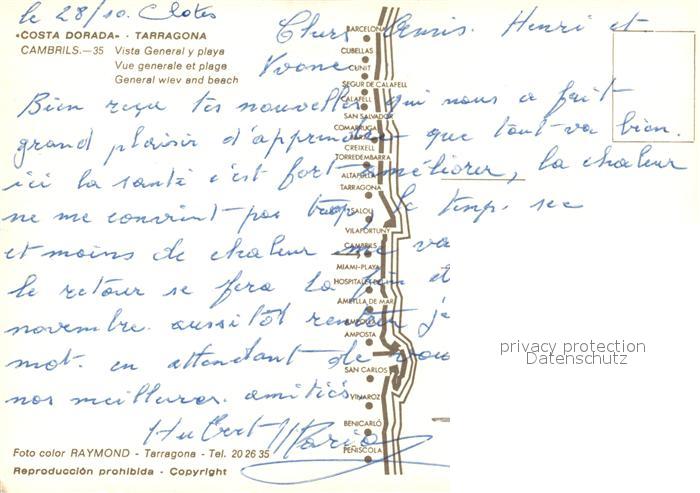 le 28/10.
«COSTA DORADA» - TARRAGONA
CAMBRILS.—35 Vista General y playa
Vue generale et plage
General wiev and beach
Chers Amis. Henri et
Yvone
Bien reçu tes nouvelles qui nous a fait
grand plaisir d'apprendre que tout va bien.
ici la santé c'est fort améliorer, la chaleur
ne me convient pas trop, le temp. sec
et moins de chaleur me va
le retour se fera la fin et
novembre. aussitôt rentrer je
mot. en attendant de vou
nos meilleures. amitiés.
Hubert Maria
BARCELONA
CUBELLAS
CUNIT
SEGUR DE CALAFELL
CALAFELL
SAN SALVADOR
COMARRUGA
CREIXELL
TORREDEMBARRA
ALTAFULLA
TARRAGONA
SALOU
VILAFORTUNY
CAMBRILS
MIAMI-PLAYA
HOSPITALET
AMETLLA DE MAR
AMPOSTA
SAN CARLOS
VINAROZ
BENICARLÓ
PEÑISCOLA
Foto color RAYMOND - Tarragona - Tel. 20 26 35
Reproducción prohibida - Copyright
privacy protection
Datenschutz